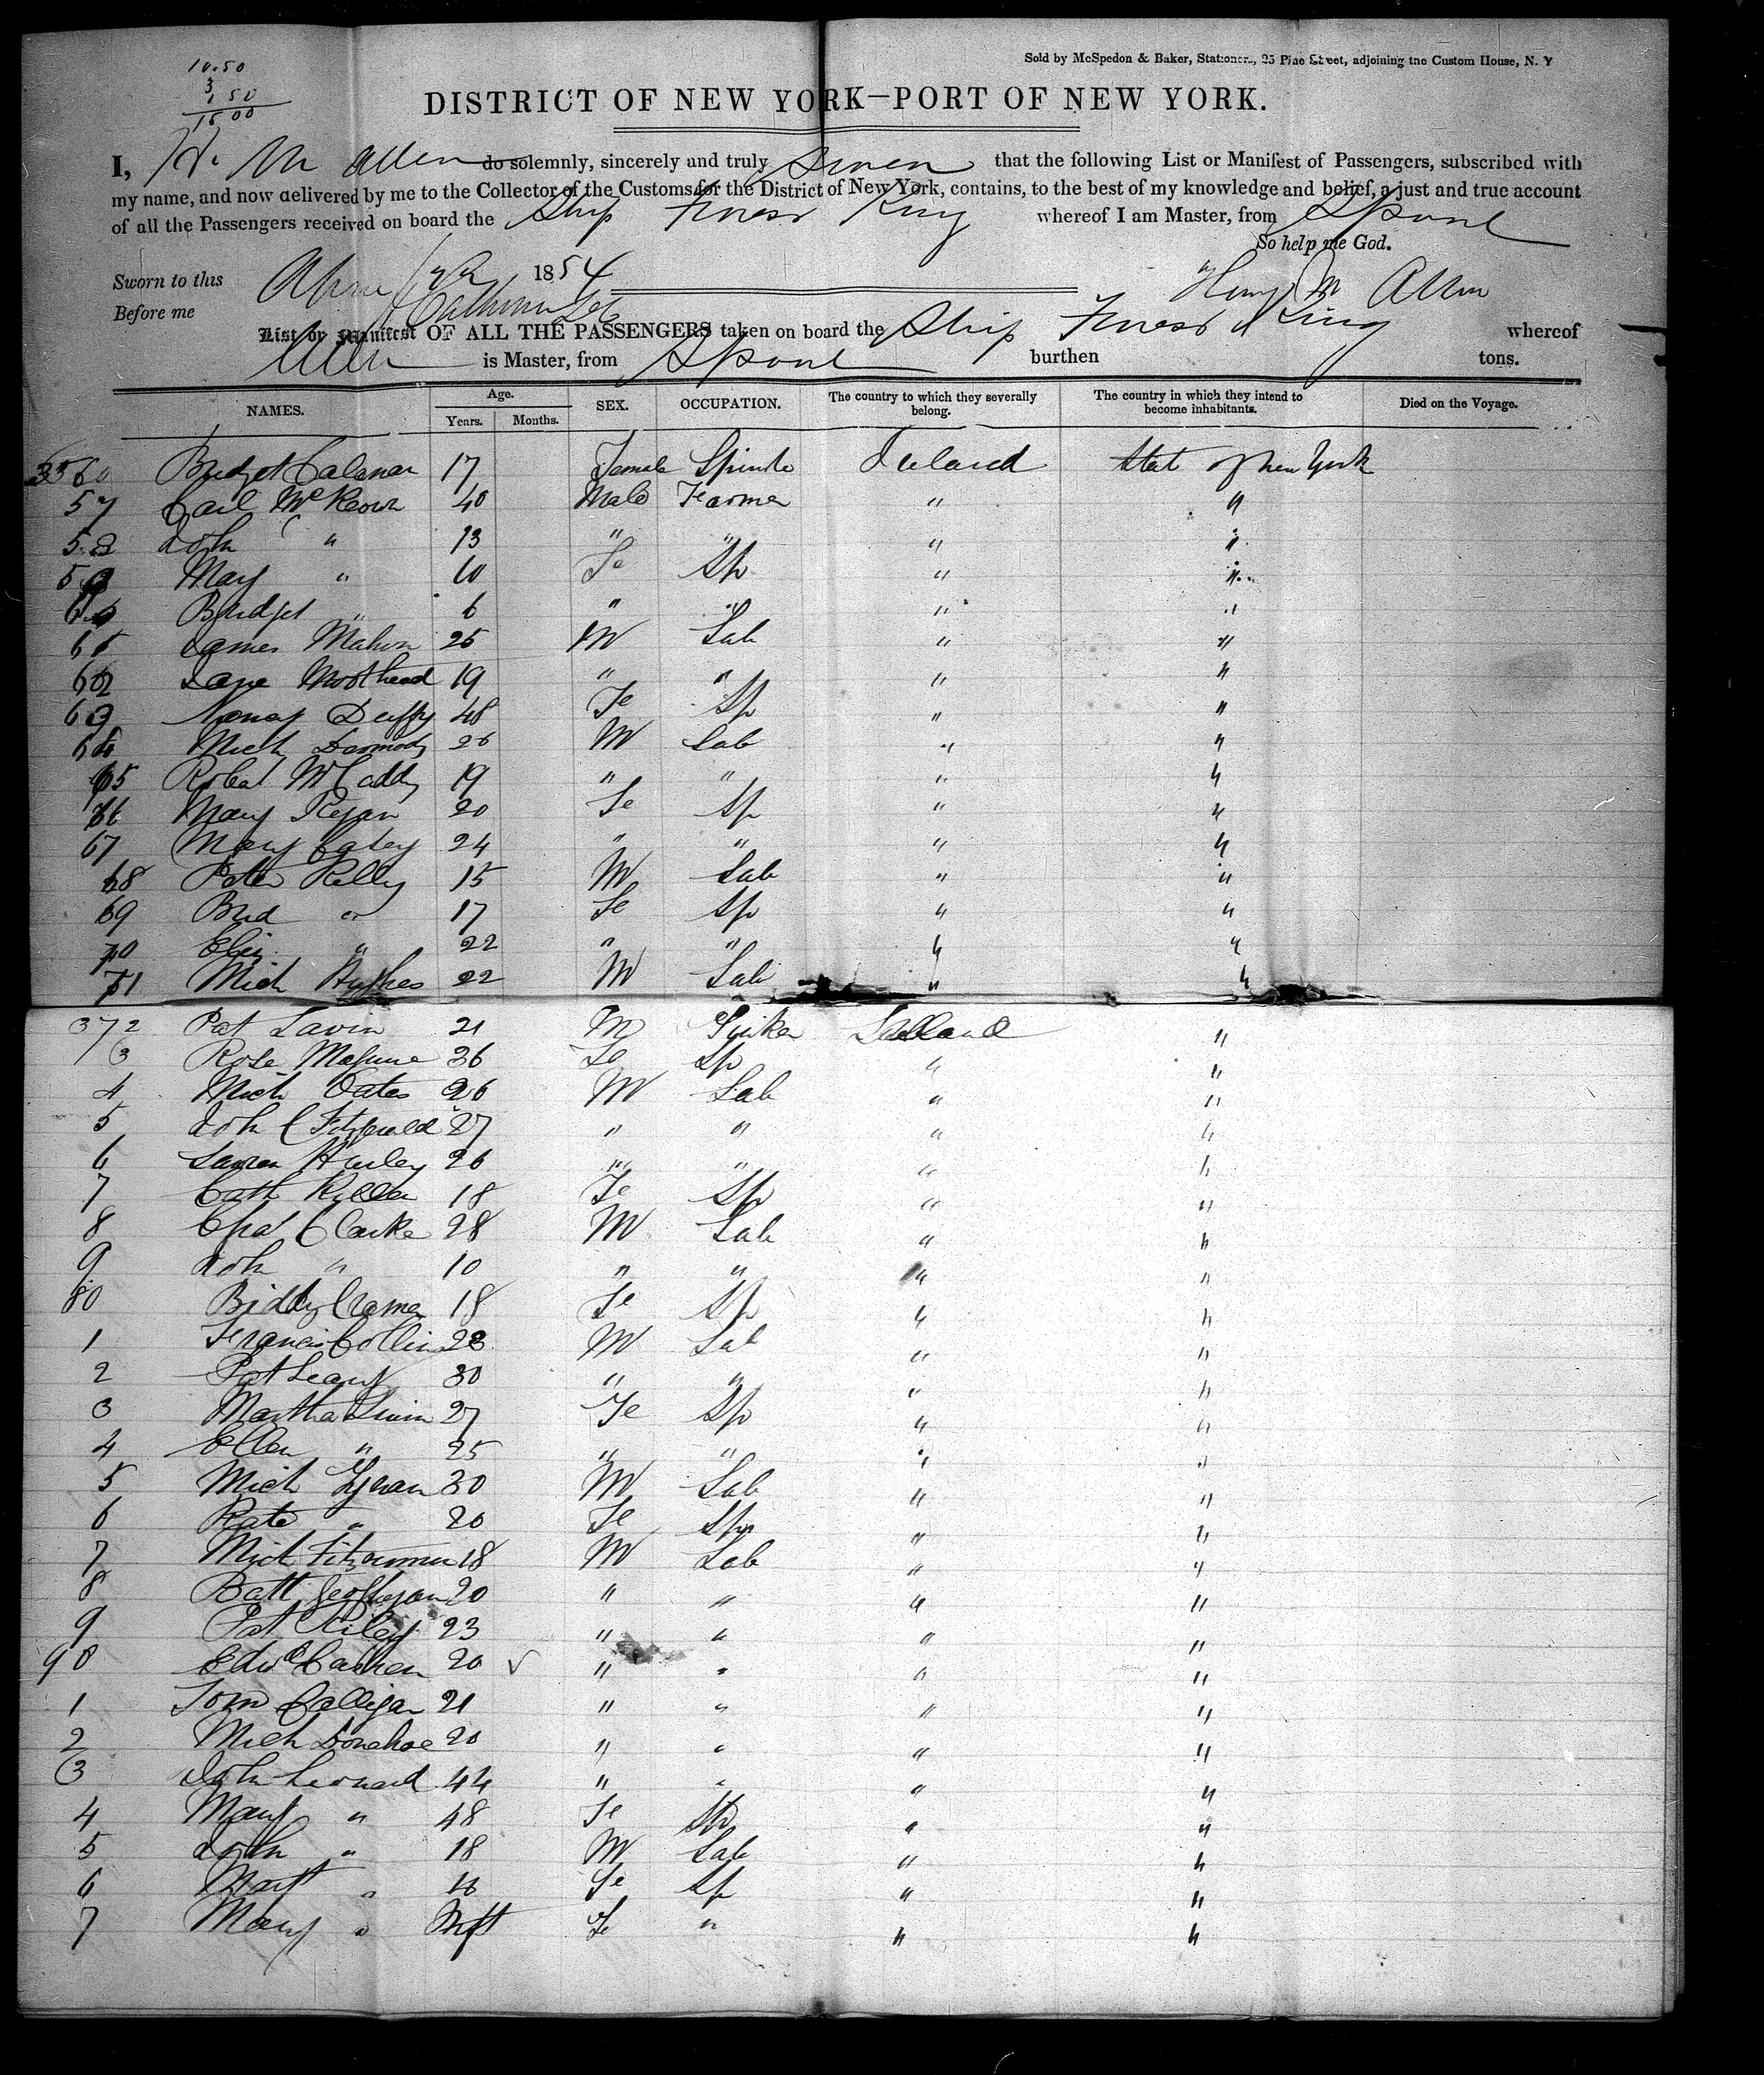 10.50
3
1 50
15 00
Sold by McSpedon & Baker, Stationers, 25 Pine Street, adjoining the Custom House, N. Y
DISTRICT OF NEW YORK—PORT OF NEW YORK.
I, H. M Allen do solemnly, sincerely and truly Swear that the following List or Manifest of Passengers, subscribed with
my name, and now delivered by me to the Collector of the Customs for the District of New York, contains, to the best of my knowledge and belief, a just and true account
of all the Passengers received on board the Ship King whereof I am Master, from Lpool
So help me God.
Sworn to this 1854 Henry M Allen
Before me
List or Manifest OF ALL THE PASSENGERS taken on board the Ship King whereof
Allen is Master, from Lpool burthen tons.
NAMES. Age. Years. Months. SEX. OCCUPATION. The country to which they severally belong. The country in which they intend to become inhabitants. Died on the Voyage.
Bridget 17 Female Ireland State of New York
57 McKeown 40 Male Farmer " "
58 John " 13 " " " "
59 Mary " 10 Fe Sp " "
60 Bridget " 6 " " " "
61 James Mahon 25 M Lab " "
62 Jane Moothead 19 " " " "
63 Nancy Duffy 48 Fe Sp " "
64 Mich Darmody 26 M Lab " "
65 Robert McCaddy 19 " " " "
66 Mary Regan 20 Fe Sp " "
67 Mary Casey 24 " " " "
68 Peter Kelly 15 M Lab " "
69 Brid " 17 Fe Sp " "
70 Eliz " 22 " " " "
71 Mich Hughes 22 M Lab " "
372 Pat Lavin 21 M Ireland "
3 Rose 36 Fe Sp " "
4 Mich Oates 26 M Lab " "
5 John Fitzgerald 27 " " " "
6 Hurley 26 " " " "
7 Cath 18 Fe Sp " "
8 Chas Clarke 28 M Lab " "
9 John " 10 " " " "
80 Biddy 18 Fe Sp " "
1 Francis Collin 28 M Lab " "
2 Pat Leary 30 " " " "
3 Martha 27 Fe Sp " "
4 Ellen " 25 " " " "
5 Mich 30 M Lab " "
6 Kate " 20 Fe Sp " "
7 Mich 18 M Lab " "
8 Batt Geoghegan 20 " " " "
9 Pat Riley 23 " " " "
90 Edwd 20 ✓ " " " "
1 Tom Calligan 21 " " " "
2 Mich Donahoe 20 " " " "
3 John Leonard 44 " " " "
4 Mary " 48 Fe Sp " "
5 John " 18 M Lab " "
6 " Fe Sp " "
7 Mary " Inft Fe " " "